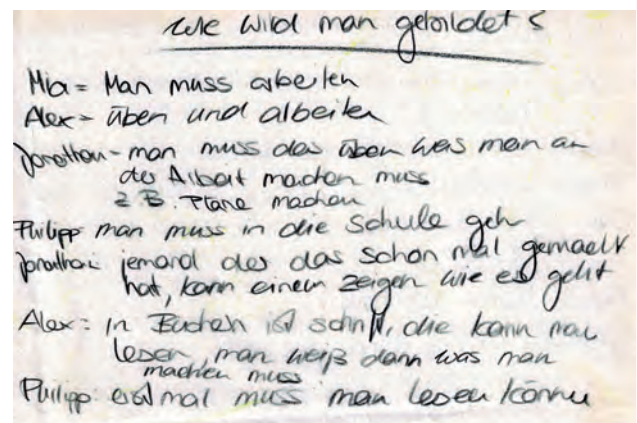 Wie wird man gebildet?
Mia = Man muss arbeiten
Alex - üben und arbeiten
Jonathan - man muss das üben was man an
der Arbeit machen muss
z B. Pläne machen
Philipp man muss in die Schule geh
Jonathan: jemand der das schon mal gemacht
hat, kann einem zeigen wie es geht
Alex: in Büchern ist schrift, die kann man
lesen, man weiß dann was man
machen muss
Philipp: erst mal muss man lesen können